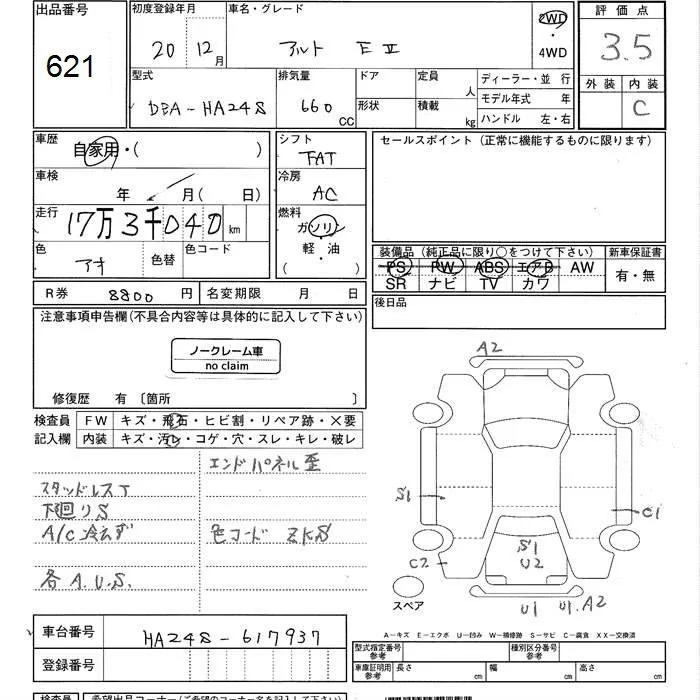 出品番号
621
初度登録年月
20 12月
車名・グレード
アルト EⅡ
2WD
・
4WD
評価点
3.5
外装 内装
C
型式
DBA-HA24S
排気量
660 CC
ドア
形状
定員
人
積載
kg
ディーラー・並 行
モデル年式 年
ハンドル 左・右
車歴
自家用・( )
シフト
FAT
セールスポイント (正常に機能するものに限ります)
車検
年 月( 日)
冷房
AC
走行
17万3千040km
燃料
ガソリン
軽・油
( )
色
アオ
色替
色コード
装備品 (純正品に限り○をつけて下さい)
新車保証書
PS PW ABS エアB AW
SR ナビ TV カワ
有・無
R券 8800 円
名変期限 月 日
後日品
注意事項申告欄(不具合内容等は具体的に記入して下さい)
ノークレーム車
no claim
修復歴 有〔箇所 〕
検査員
記入欄
FW キズ・飛石・ヒビ割・リペア跡・×要
内装 キズ・汚レ・コゲ・穴・スレ・キレ・破レ
エンドパネル歪
スタッドレスT
下廻りS
A/C冷えず
色コード ZKS
各A.U.S.
A2
S1
C1
S1
U2
C2
スペア
U1 U1.A2
車台番号
HA24S-617937
登録番号
A-キズ E-エクボ U-凹み W-補修跡 S-サビ C-腐食 XX-交換済
型式指定番号
参考
種別区分番号
参考
車庫証明用
参考
長さ cm
幅 cm
高さ cm
検査員
希望出品コーナー(ご希望のコーナー名を記入して下さい)